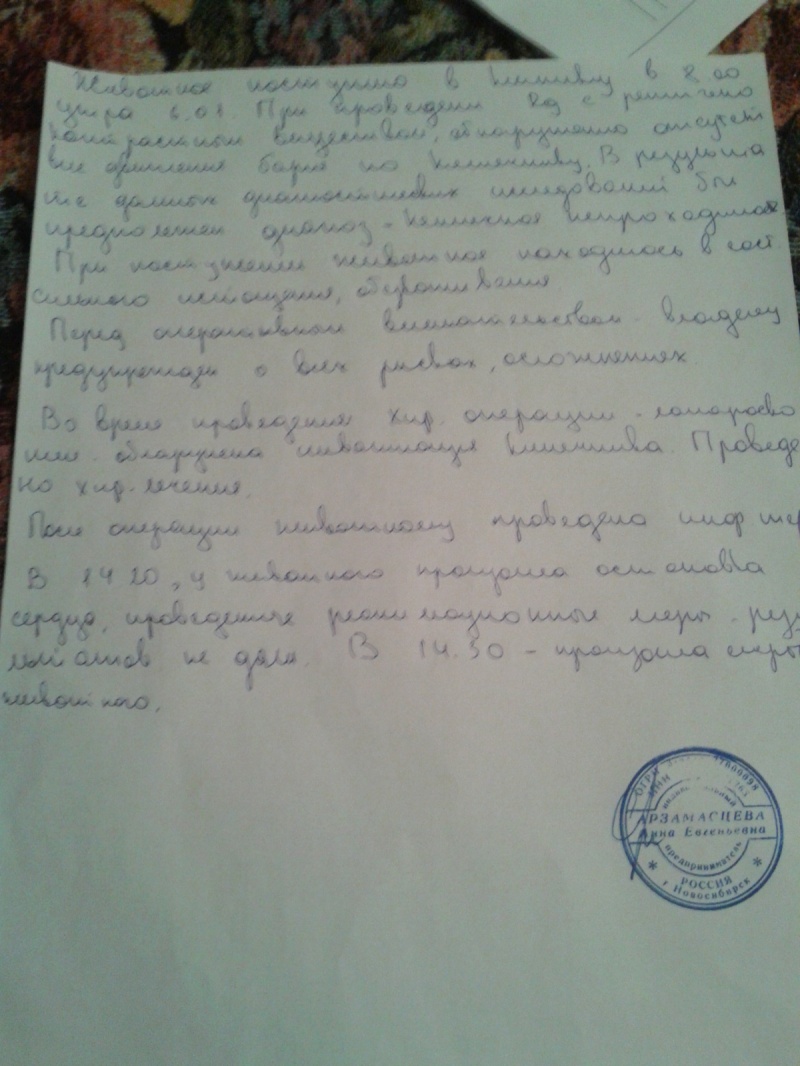 Животное поступило в клинику в 8.00
утра 6.01. При проведении Rg с рентгено
контрастным веществом, обнаружено отсутст
вие движения бария по кишечнику. В результа
те данных диагностических исследований был
предположен диагноз - кишечная непроходимость
При поступлении животное находилось в сост.
сильного истощения, обезвоживания.
Перед оперативным вмешательством - владелец
предупрежден о всех рисках, осложнениях.
Во время проведения хир. операции - лапарото
мии - обнаружена инвагинация кишечника. Проведе
но хир. лечение.
После операции животному проведена инф. тер
В 14 20, у животного произошла остановка
сердца, проведенные реанимационные меры - резу
льтатов не дали. В 14.50 - произошла смерть
животного.
ОГРН
ИНН
индивидуальный
АРЗАМАСЦЕВА
Анна Евгеньевна
предприниматель
* РОССИЯ *
г Новосибирск